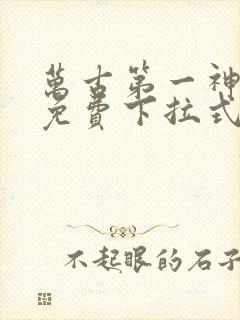 萬古第一神
免費下拉式
不起眼的石子